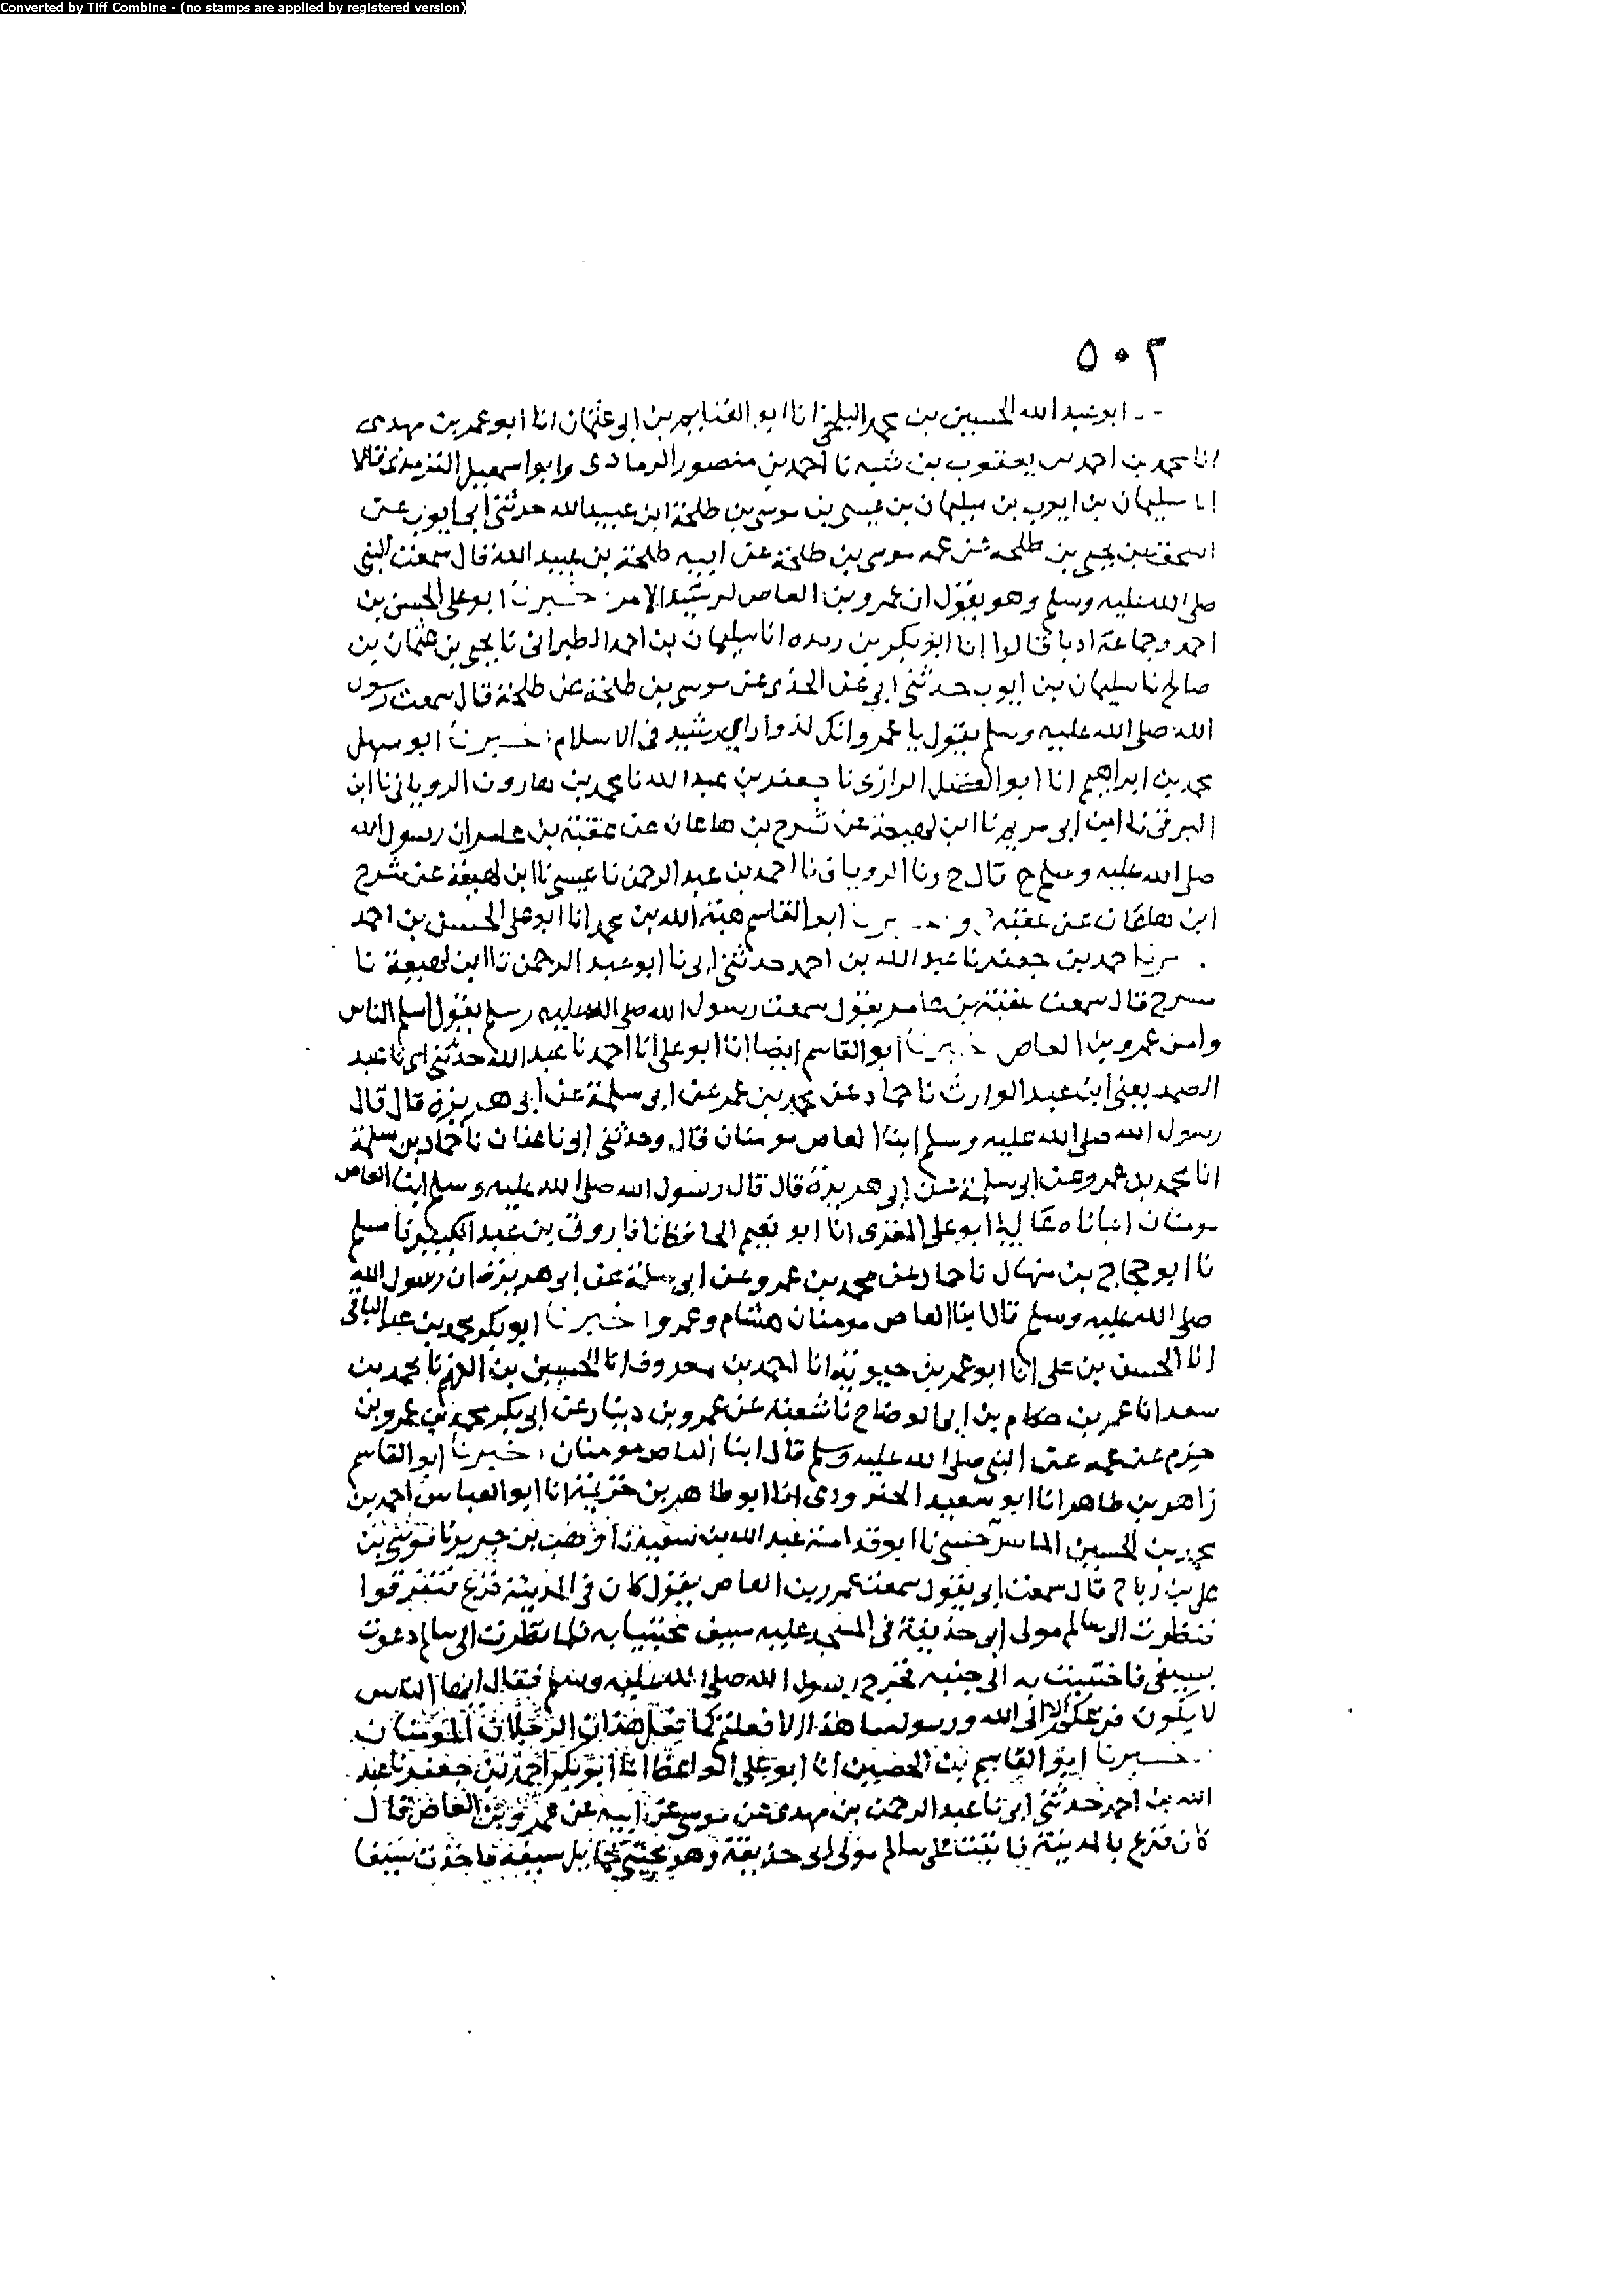 Converted by Tiff Combine - (no stamps are applied by registered version)
٥٠٣
ابو عبد الله الحسين بن محمد البلخي انا ابو الغنايم بن ابي عثمان انا ابو عمر بن مهدى
انا محمد بن احمد بن يعقوب بن شيبه نا احمد بن منصور الرمادى وابو اسمعيل الترمذى قالا
انا سليمان بن ايوب بن سليمان بن عيسى بن موسى بن طلحة ابن عبيد الله حدثنى ابى ايوب عن
اسحق بن يحيى بن طلحه عن عمه موسى بن طلحة عن ابيه طلحة بن عبيد الله قال سمعت النبى
صلى الله عليه وسلم وهو يقول ان عمرو بن العاص لرشيد الامر خبرنا ابو على الحسن بن
احمد وجماعة قالوا انا ابو بكر بن ريده انا سليمان بن احمد الطبرانى نا يحيى بن عثمان بن
صالح نا سليمان بن ايوب حدثنى ابى عن موسى بن طلحة عن طلحة قال سمعت رسول
الله صلى الله عليه وسلم يقول يا عمرو انك لذو راى رشيد فى الاسلام خبرنا ابو سهل
محمد بن ابراهيم انا ابو الفضل الرازى نا جعفر بن عبد الله نا محمد بن هارون الرويانى نا ابن
البرقى نا ابن ابى مريم نا ابن لهيعة عن شرح بن هاعان عن عقبة بن عامر ان رسول الله
صلى الله عليه وسلم ح قال ح ونا الرويانى نا احمد بن عبد الرحمن نا عيسى نا ابن لهيعة عن مشرح
ابن هاعان عن عقبة و خبرنا ابو القاسم هبة الله بن محمد انا ابو على الحسن بن احمد
نا احمد بن جعفر نا عبد الله بن احمد حدثنى ابى نا ابو عبد الرحمن نا ابن لهيعة نا
مسرح قال سمعت عقبة بن عامر يقول سمعت رسول الله صلى الله عليه وسلم يقول اسلم الناس
وامن عمرو بن العاص خبرنا ابو القاسم ايضا انا ابو على انا احمد نا عبد الله حدثنى ابى نا عبد
الصمد يعنى ابن عبد الوارث نا حماد عن محمد بن عمر عن ابى سلمة عن ابى هريرة قال قال
رسول الله صلى الله عليه وسلم ابنا العاص مومنان قال وحدثنى ابى نا عفان نا حماد بن سلمة
انا محمد بن عمرو عن ابى سلمة عن ابى هريرة قال قال رسول الله صلى الله عليه وسلم ابنا العاص
مومنان انبانا ابو على المقرى انا ابو نعيم الحافظ نا فاروق بن عبد الكبير نا مسلم
نا ابو حجاج بن منهال نا حماد عن محمد بن عمرو عن ابى سلمة عن ابى هريرة ان رسول الله
صلى الله عليه وسلم قال ابنا العاص مومنان هشام وعمرو اخبرنا ابو بكر محمد بن عبد الباقى
انا الحسن بن على انا ابو عمر بن حيويه انا احمد بن معروف انا الحسين بن الفهم نا محمد بن
سعد انا عمر بن حكام بن ابى الوضاح نا شعبة عن عمرو بن دينار عن ابى بكر محمد بن عمرو بن
حزم عن عمه عن النبى صلى الله عليه وسلم قال ابنا العاص مومنان خبرنا ابو القاسم
زاهر بن طاهر انا ابو سعيد الجنزرودى انا ابو طاهر بن خزيمة انا ابو العباس احمد بن
محمد بن الحسين الماسرجسى نا ابو قدامة عبد الله بن سعيد نا وهب بن جرير نا موسى بن
على بن رباح قال سمعت ابى يقول سمعت عمرو بن العاص يقول كان فى المدينة فزع فتفرقوا
فنظرت الى سالم مولى ابى حذيفة فى المسجد عليه سيف محتبيا به فلما نظرت الى سالم دعوت
بسيفى فاحتبيت به الى جنبه فخرج رسول الله صلى الله عليه وسلم فقال ايها الناس
لا يكون فزعكم الا الى الله ورسوله ما هذا الا فعلتم كما فعل هذان الرجلان المومنان
خبرنا ابو القاسم بن الحصين انا ابو على الواعظ انا ابو بكر احمد بن جعفر نا عبد
الله بن احمد حدثنى ابى نا عبد الرحمن بن مهدى عن موسى عن ابيه عن عمرو بن العاص قال
كان فزع بالمدينة فاتيت على سالم مولى ابى حذيفة وهو محتبى بحمايل سيفه فاخذت سيفا